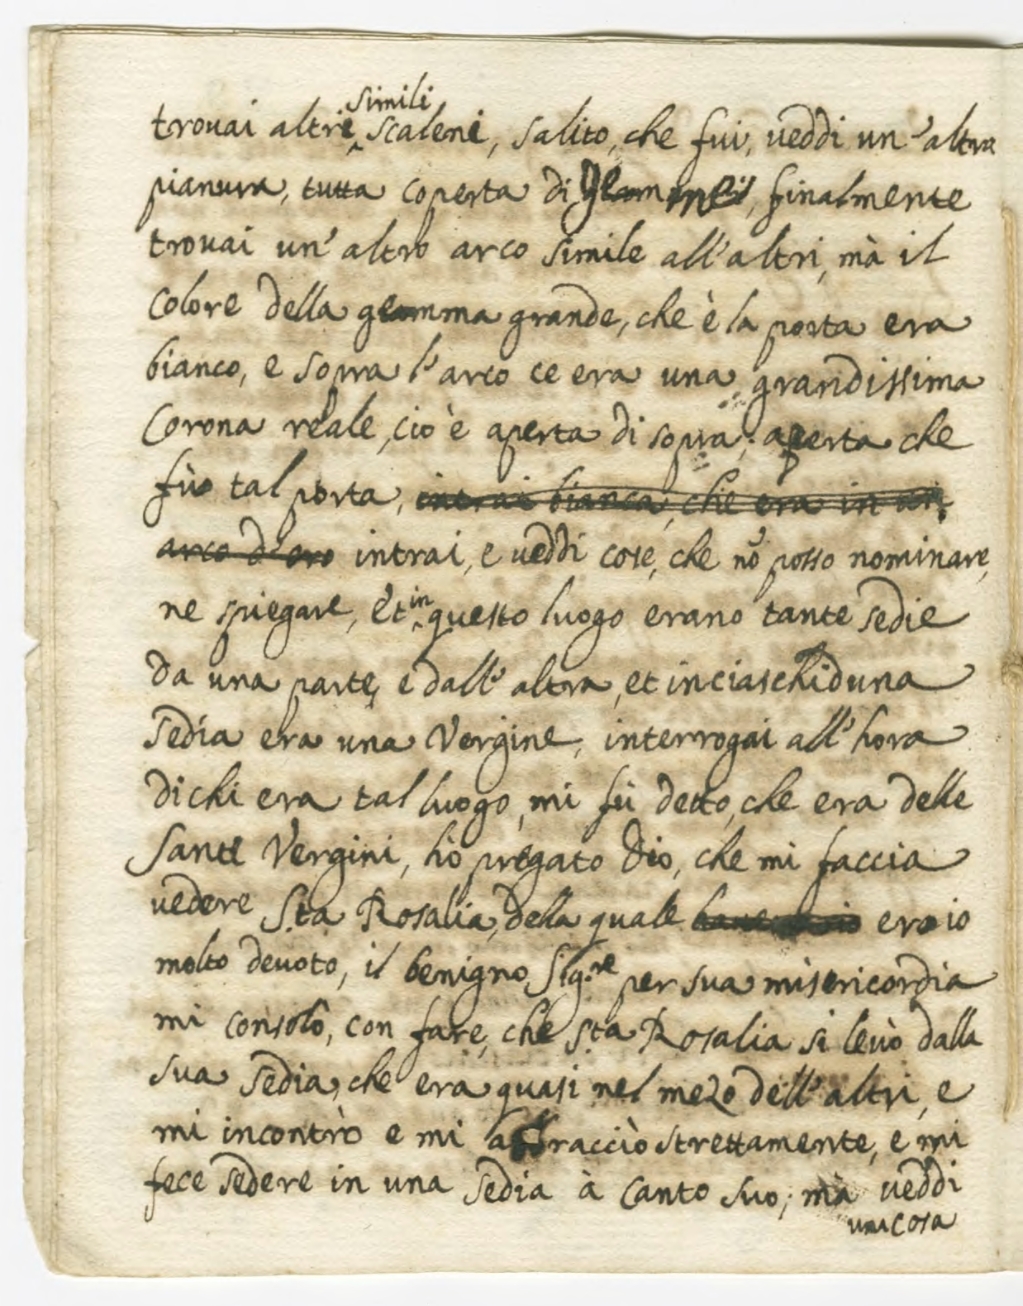 trouai altri simili scaleni, salito, che fui, veddi un'altra
pianura, tutta coperta di gemme, finalmente
trouai un'altro arco simile all'altri, mà il
colore della gemma grande, che è la porta era
bianco, e sopra l'arco ce era una grandissima
Corona reale, cio è aperta di sopra, aperta che
fù tal porta, intrai bianca, che era in un
arco d'oro intrai, e veddi cose, che nõ posso nominare,
ne spiegare, et in questo luogo erano tante sedie
da una parte, e dall'altra, et in ciascheduna
sedia era una Vergine, interrogai all'hora
di chi era tal luogo, mi fù detto, che era delle
Sante Vergini, hò pregato Dio, che mi faccia
vedere S.ta Rosalia, della quale ero io
molto deuoto, il benigno Sig.re per sua misericordia
mi consolò, con fare, che S.ta Rosalia si leuò dalla
sua sedia, che era quasi nel mezo dell'altri, e
mi incontrò e mi abbracciò strettamente, e mi
fece sedere in una sedia à canto suo, mà veddi
una cosa